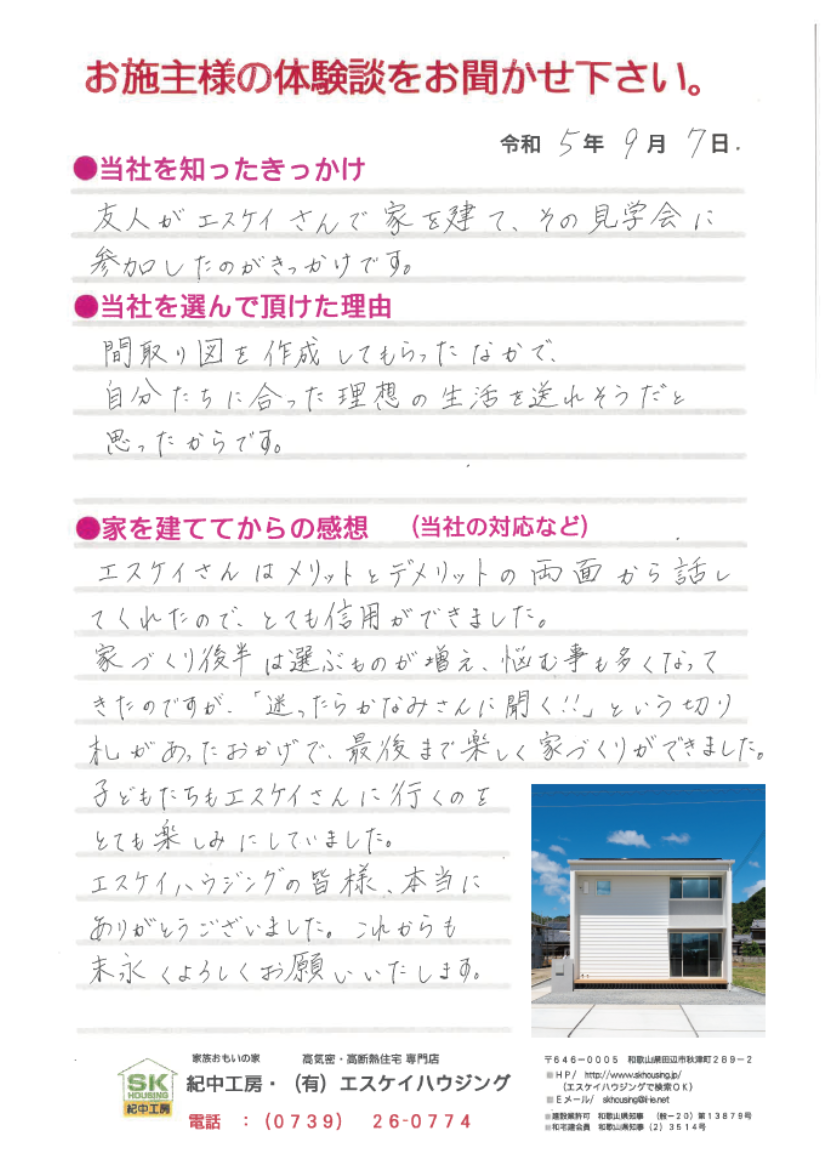 お施主様の体験談をお聞かせ下さい。
令和 5年 9月 7日.
●当社を知ったきっかけ
友人がエスケイさんで家を建て、その見学会に
参加したのがきっかけです。
●当社を選んで頂けた理由
間取り図を作成してもらったなかで、
自分たちに合った理想の生活を送れそうだと
思ったからです。
●家を建ててからの感想 (当社の対応など)
エスケイさんはメリットとデメリットの両面から話し
てくれたので、とても信用ができました。
家づくり後半は選ぶものが増え、悩む事も多くなって
きたのですが、「迷ったらかなみさんに聞く!!」という切り
札があったおかげで、最後まで楽しく家づくりができました。
子どもたちもエスケイさんに行くのを
とても楽しみにしていました。
エスケイハウジングの皆様、本当に
ありがとうございました。これからも
末永くよろしくお願いいたします。
家族おもいの家 高気密・高断熱住宅 専門店
SK HOUSING 紀中工房
紀中工房・(有) エスケイハウジング
電話 : (0739) 26-0774
〒646-0005 和歌山県田辺市秋津町289-2
■HP/ http://www.skhousing.jp/
(エスケイハウジングで検索OK)
■Eメール/ skhousing@i-ie.net
■建設業許可 和歌山県知事 (般-20) 第13879号
■和宅建会員 和歌山県知事 (2) 3514号